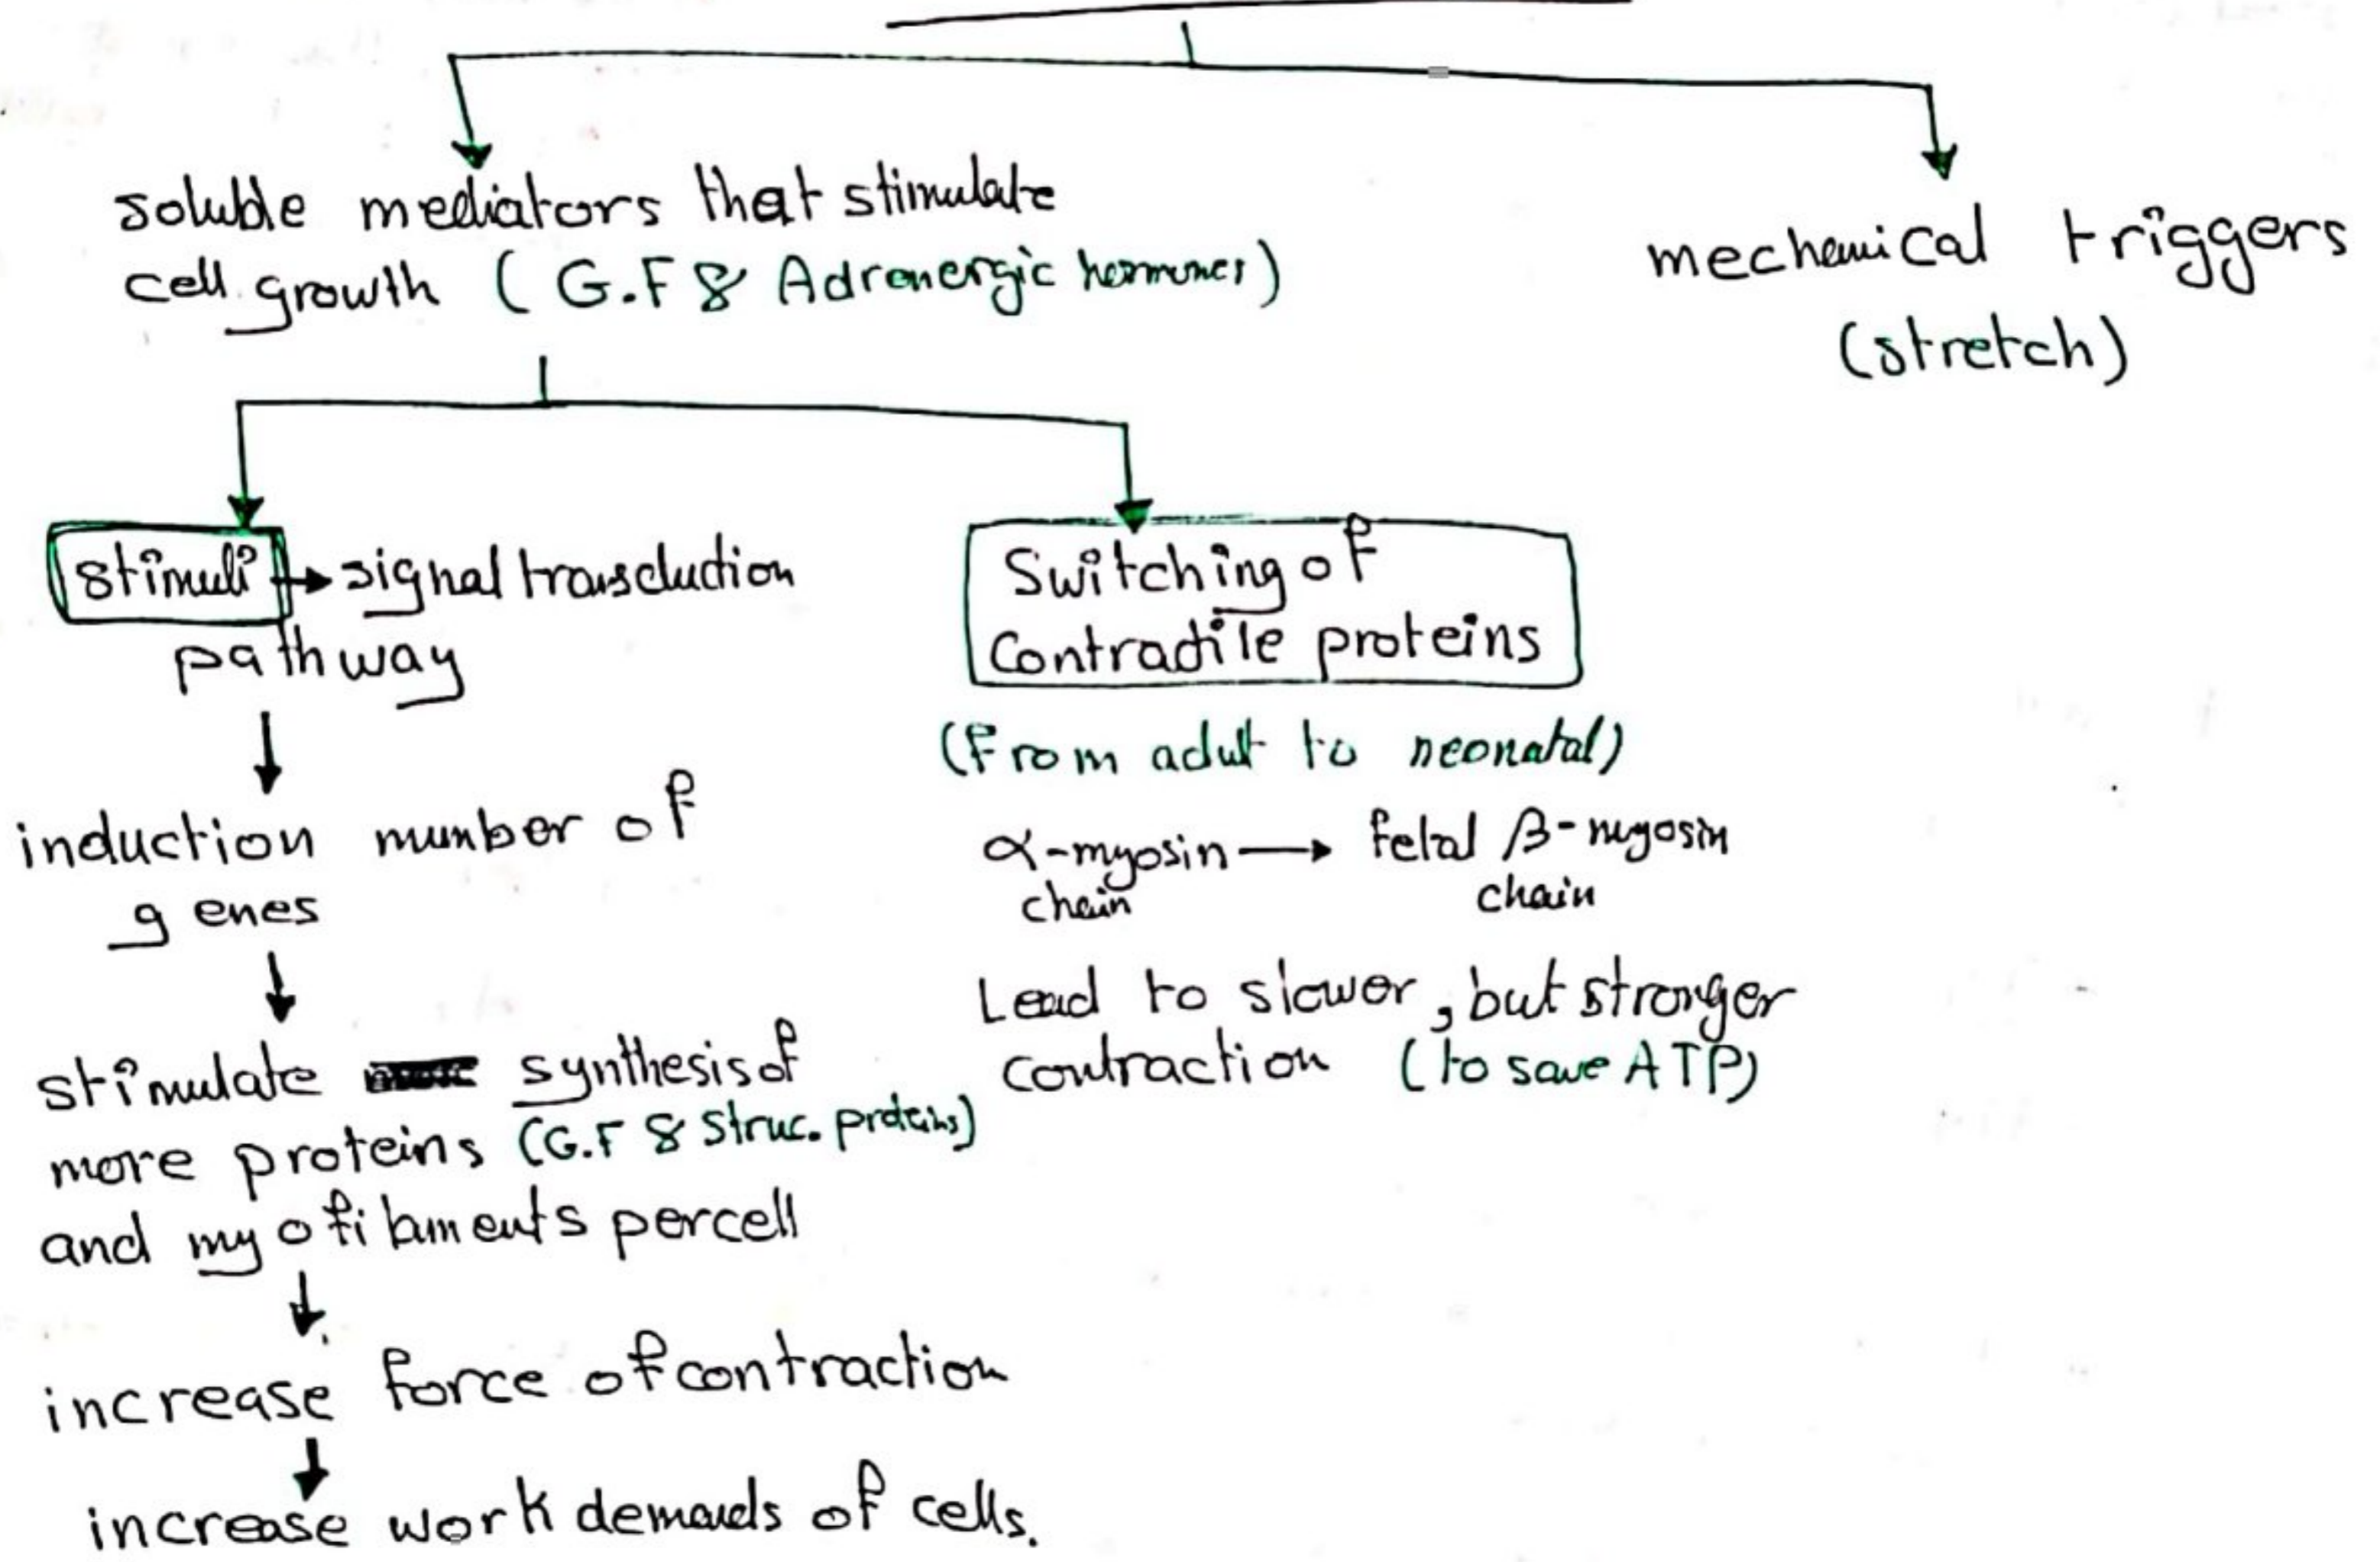 soluble mediators that stimulate
cell growth ( G.F & Adrenergic hormones)
mechanical triggers
(stretch)
stimuli → signal transduction
pathway
induction number of
genes
stimulate synthesis of
more proteins (G.F & Struc. proteins)
and myofilaments per cell
increase force of contraction
increase work demands of cells.
Switching of
Contractile proteins
(From adult to neonatal)
α-myosin → fetal β-myosin
chain chain
Lead to slower, but stronger
contraction (to save ATP)